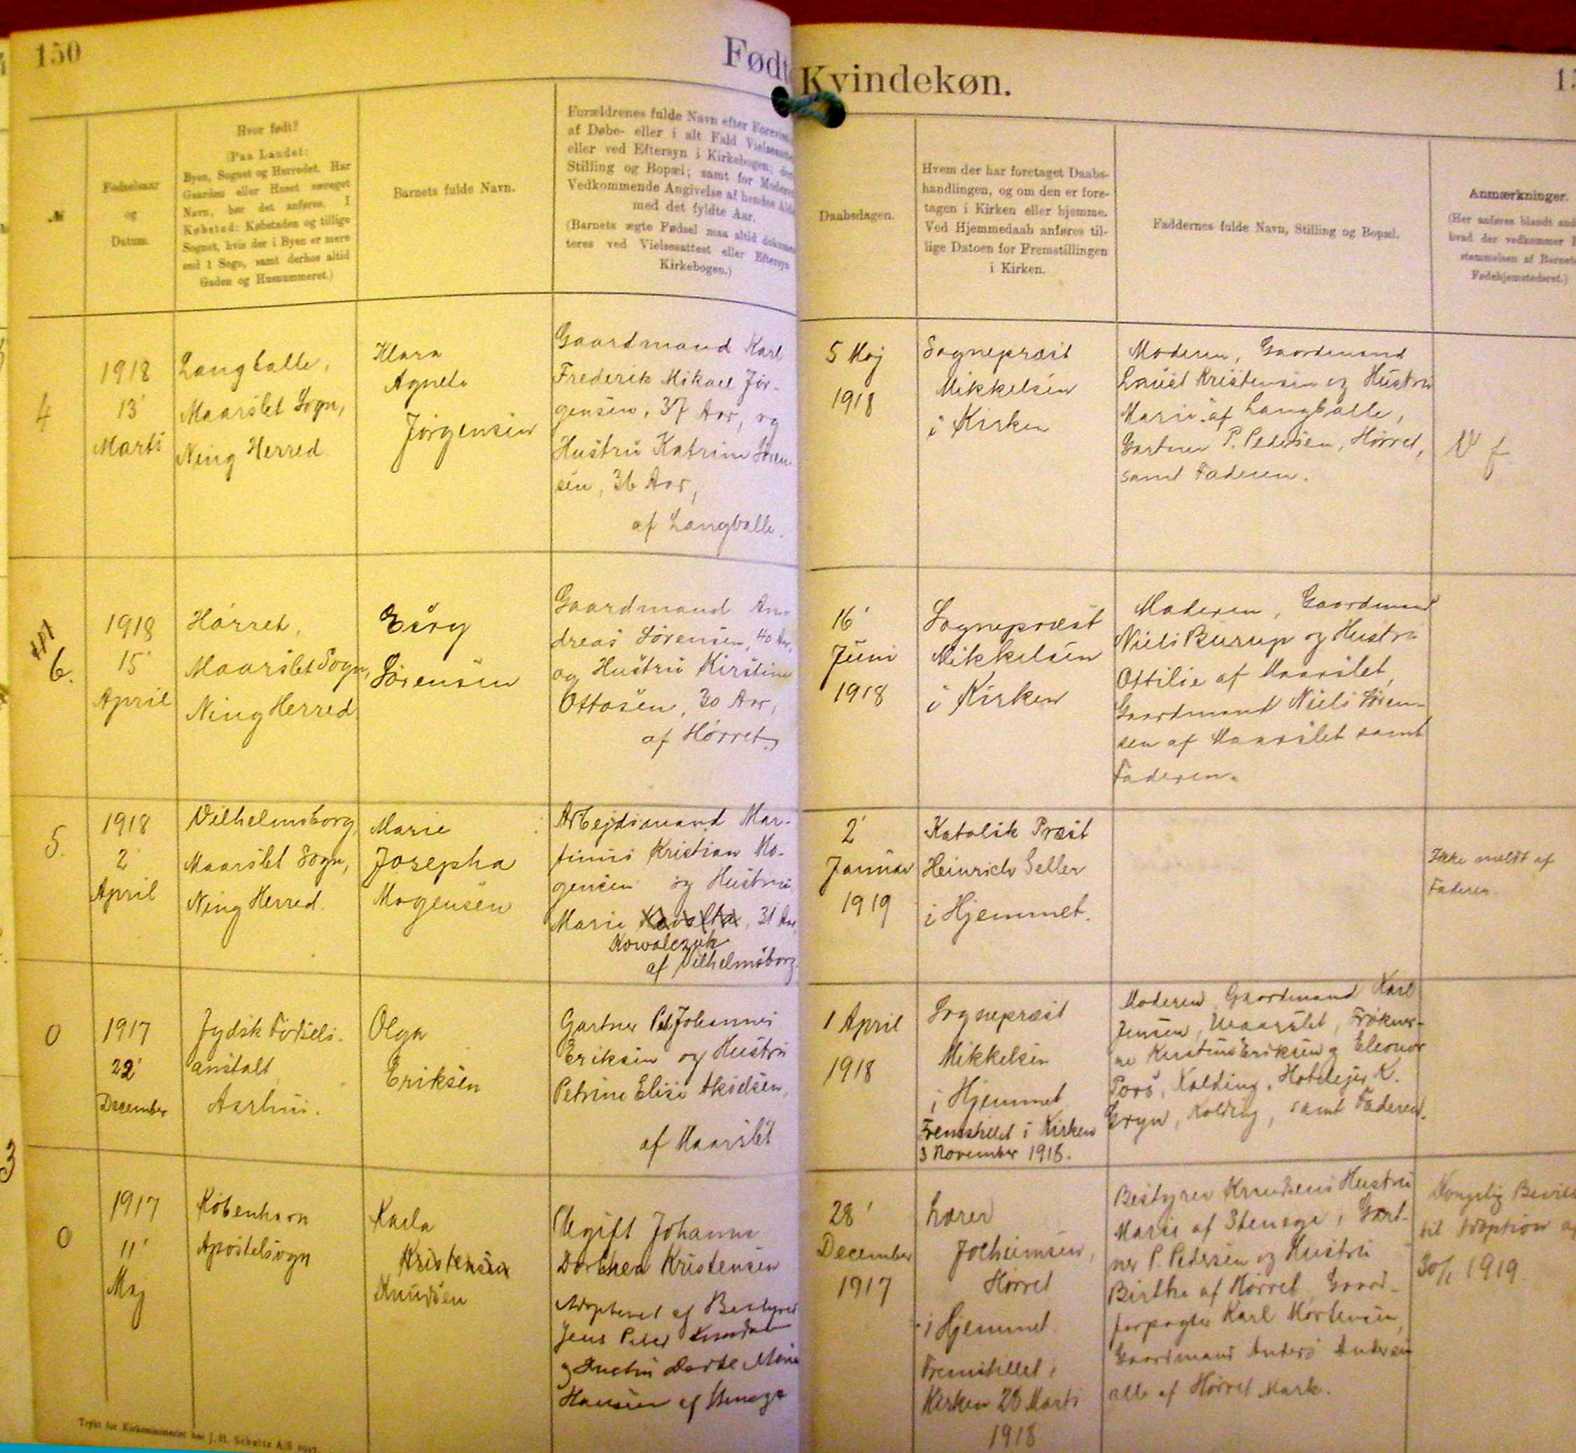 150
Født
Kvindekøn.
Fødselsaar
og
Datum.
Hvor født?
(Paa Landet:
Byen, Sognet og Herredet. Har
Gaarden eller Huset særeget
Navn, bør det anføres. I
Købstad: Købstaden og tillige
Sognet, hvis der i Byen er mere
end 1 Sogn, samt derhos altid
Gaden og Husnummeret.)
Barnets fulde Navn.
Forældrenes fulde Navn efter
af Døbe- eller i alt Fald
eller ved Eftersyn i Kirkebogen;
Stilling og Bopæl; samt for
Vedkommende Angivelse af hendes
med det fyldte Aar.
(Barnets ægte Fødsel maa altid
teres ved Vielsesattest eller Eftersyn
Kirkebogen.)
Daabsdagen.
Hvem der har foretaget Daabs-
handlingen, og om den er fore-
tagen i Kirken eller hjemme.
Ved Hjemmedaab anføres til-
lige Datoen for Fremstillingen
i Kirken.
Faddernes fulde Navn, Stilling og Bopæl.
Anmærkninger.
(Her anføres blandt
hvad der vedkommer
stemmelsen af
Fødehjemstedsret.)
4
1918
13'
Marts
Langballe,
Maarslet Sogn,
Ning Herred
Klara
Agnete
Jørgensen
Gaardmand Karl
Frederik Mikael Jør-
gensen, 37 Aar, og
Hustru Katrine Sören-
sen, 36 Aar,
af Langballe.
5 Maj
1918
Sognepræst
Mikkelsen
i Kirken
Moderen, Gaardmand
Laurist Kristensen og Hustru
Marie af Langballe,
Gartner P. Pedersen, Hørret,
samt Faderen.
6.
1918
15'
April
Hørret,
Maarslet Sogn,
Ning Herred
Sørensen
Gaardmand An-
dreas Sørensen, 40 Aar,
og Hustru Kirstine
Ottosen, 30 Aar,
af Hørret.
16'
Juni
1918
Sognepræst
Mikkelsen
i Kirken
Moderen, Gaardmand
Niels Burup og Hustru
Ottilie af Maarslet,
Gaardmand Niels Sören-
sen af Maarslet samt
Faderen.
5.
1918
2'
April
Vilhelmsborg,
Maarslet Sogn,
Ning Herred.
Marie
Josepha
Mogensen
Arbejdsmand Mar-
tinus Kristian Mo-
gensen og Hustru
Marie 31 Aar
Kowalczyk
af Vilhelmsborg.
2'
Januar
1919
Katolsk Præst
Heinrich Geller
i Hjemmet.
Ikke meldt af
Faderen.
0
1917
22'
December
Jydsk Fødsels-
anstalt
Aarhus.
Olga
Eriksen
Gartner Johannes
Eriksen og Hustru
Petrine Elise
af Maarslet
1 April
1918
Sognepræst
Mikkelsen
i Hjemmet
Fremstillet i Kirken
3 November 1918.
Moderen, Gaardmand Karl
Jensen, Maarslet, Frøkner-
ne Kirstine Eriksen og Eleonor
Kolding, Hotelejer K.
Gryn, Kolding, samt Faderen.
0
1917
11'
Maj
København
Apostelsogn
Karla
Kristensen
Knudsen
Ugift Johanne
Dorthea Kristensen
Adopteret af Bestyrer
Jens Peter Knudsen
og Hustru Dorte Marie
Hansen af Stensge
28'
December
1917
Lærer
Jochumsen,
Hørret
i Hjemmet.
Fremstillet i
Kirken 28 Marts
1918
Bestyrer Knudsens Hustru
Marie af Stensge, Gart-
ner P. Pedersen og Hustru
Birthe af Hørret, Gaard-
forpagter Karl Mortensen,
Gaardmand Anders Andersen
alle af Hørret Mark.
Kongelig
til Adoption af
30/1 1919.